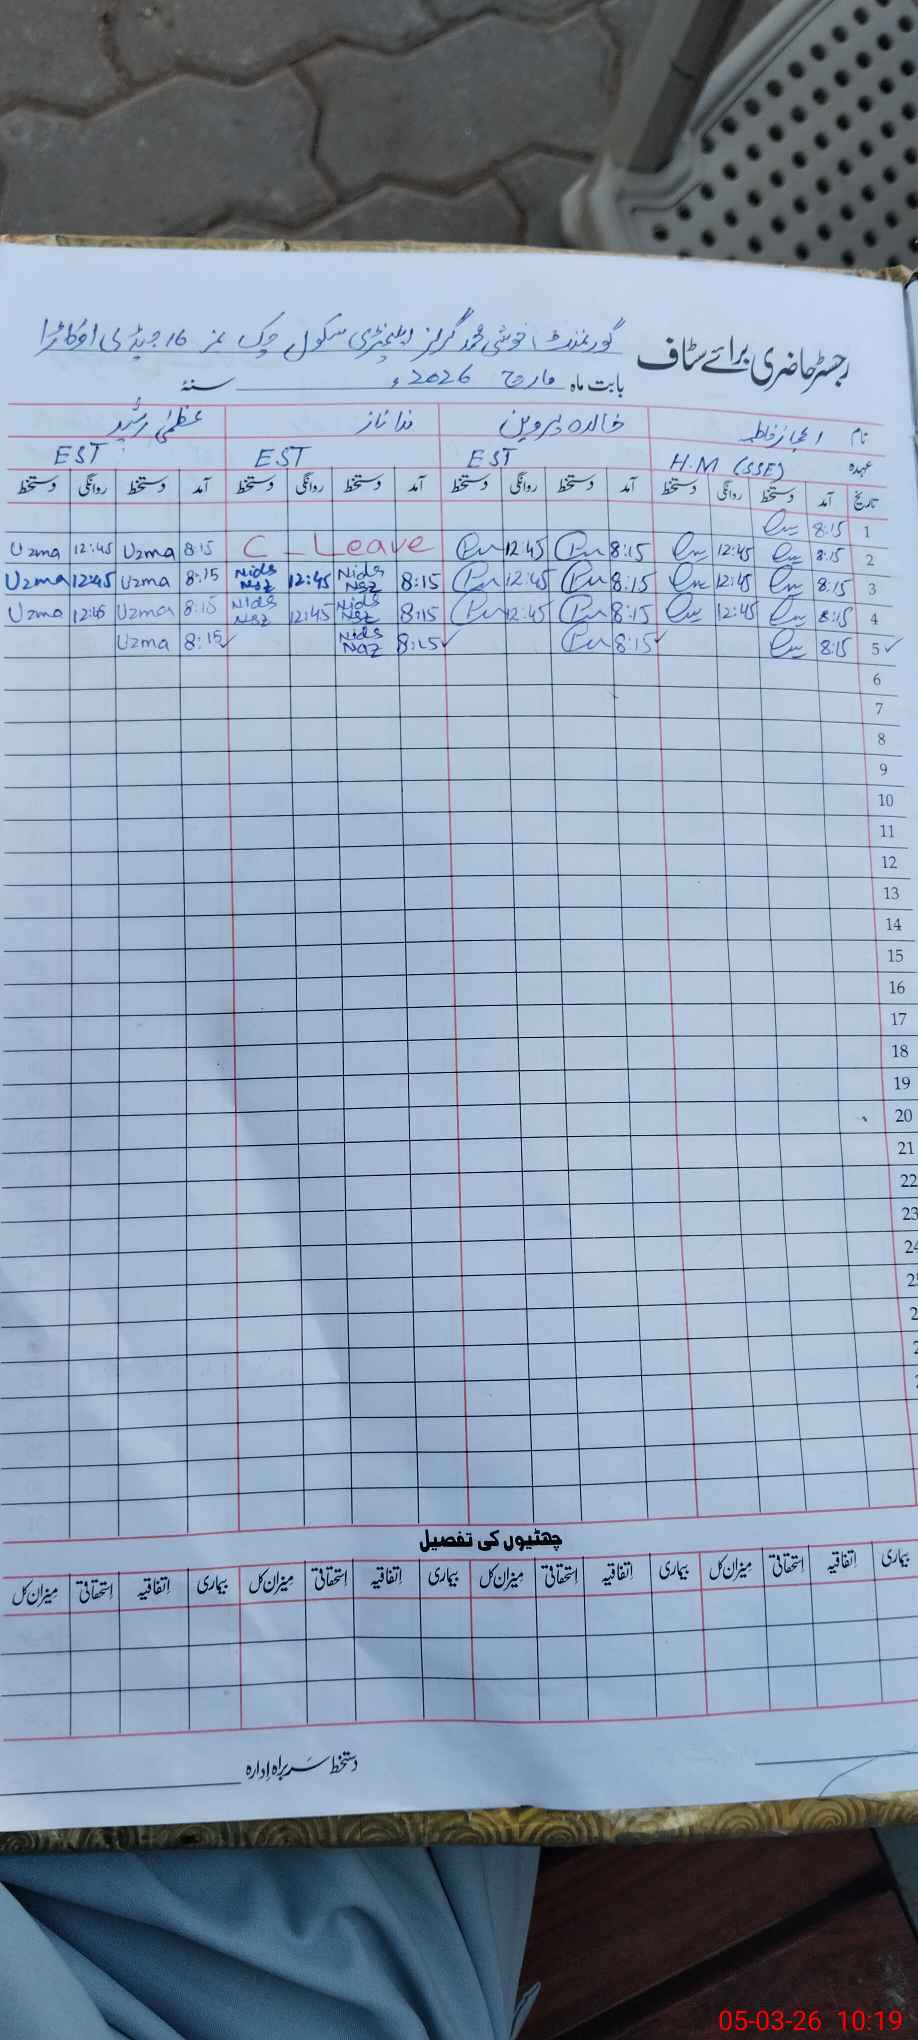 رجسٹر حاضری برائے سٹاف گورنمنٹ خوشی محمد گرلز ایلیمنٹری سکول چک نمبر 16 جی ڈی اوکاڑا
بابت ماہ مارچ 2026ء سنۂ
نام اعجاز فاطمہ خالدہ پروین ندا ناز عظمیٰ رشید
عہدہ H.M (SSE) EST EST EST
تاریخ آمد دستخط روانگی دستخط آمد دستخط روانگی دستخط آمد دستخط روانگی دستخط آمد دستخط روانگی دستخط
1 8:15
2 8:15 12:45 8:15 12:45 C - Leave 8:15 Uzma 12:45 Uzma
3 8:15 12:45 8:15 12:45 8:15 Nida Naz 12:45 Nida Naz 8:15 Uzma 12:45 Uzma
4 8:15 12:45 8:15 12:45 8:15 Nida Naz 12:45 Nida Naz 8:15 Uzma 12:45 Uzma
5 8:15 8:15 8:15 Nida Naz 8:15 Uzma
6
7
8
9
10
11
12
13
14
15
16
17
18
19
20
21
22
23
24
چھٹیوں کی تفصیل
بیماری اتفاقیہ استحقاقی میزان کل بیماری اتفاقیہ استحقاقی میزان کل بیماری اتفاقیہ استحقاقی میزان کل بیماری اتفاقیہ استحقاقی میزان کل
دستخط سربراہ ادارہ
05-03-26 10:19